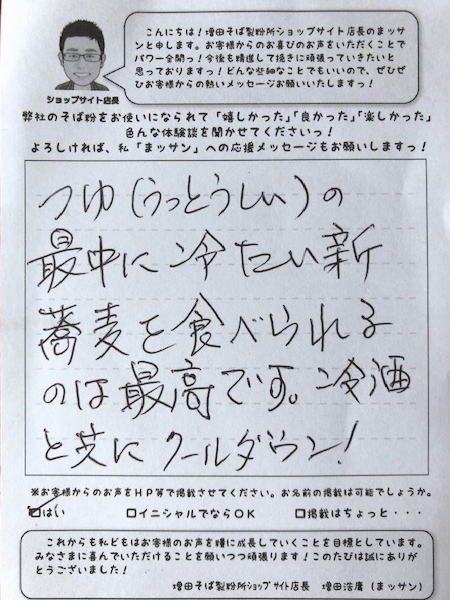 こんにちは！増田そば製粉所ショップサイト店長のまっサン
と申します。お客様からのお喜びのお声をいただくことで
パワー全開っ！今後も精進して挽きに頑張っていきたいと
思っておりますっ！どんな些細なことでもいいので、ぜひぜ
ひお客様からの熱いメッセージお願いいたしますっ！
ショップサイト店長
弊社のそば粉をお使いになられて「嬉しかった」「良かった」「楽しかった」
色んな体験談を聞かせてくださいっ！
よろしければ、私「まッサン」への応援メッセージもお願いしますっ！
つゆ(うっとうしい)の
最中に冷たい新
蕎麦を食べられる
のは最高です。冷酒
と共にクールダウン！
※お客様からのお声をHP等で掲載させてください。お名前の掲載は可能でしょうか。
はい □イニシャルでならOK □掲載はちょっと・・・
これからも私どもはお客様のお声を糧に成長していくことを目標としています。
みなさまに喜んでいただけることを願いつつ頑張ります！このたびは誠にありが
とうございました！
増田そば製粉所ショップサイト店長 増田浩庸（まッサン）